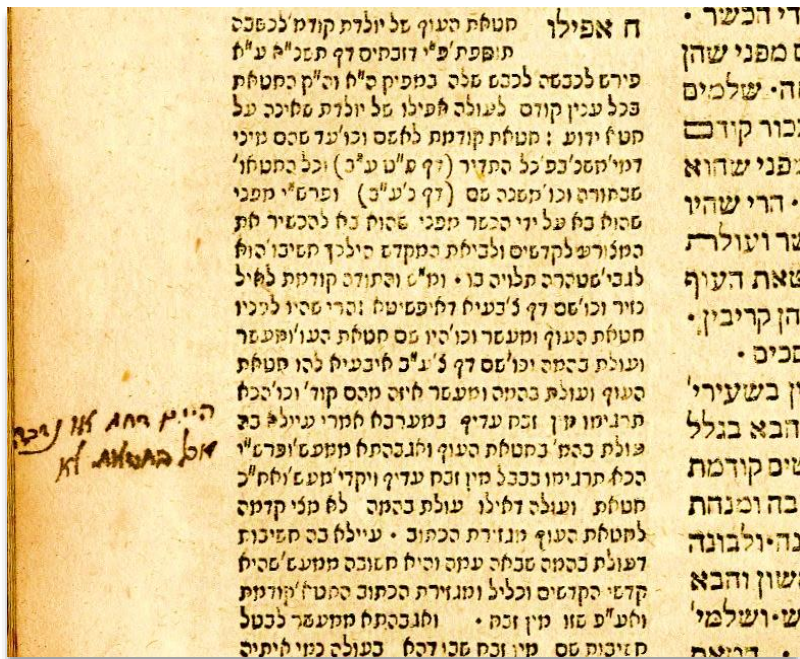 ח אפילו חטאת העוף של יולדת קודמ' לכשבה
תוספת' פ"י דזבחים דף תשכ"א ע"א
פירש לכבשה לכבש שלה במפיק ה"א וה"ק החטאת
בכל ענין קודם לעולה אפילו של יולדת שאינה על
חטא ידוע : חטאת קודמת לאשם וכו' עד שהם מיני
דמי' משנ' בפ' כל התדיר (דף פ"ט ע"ב) וכל החטאו'
שבתורה וכו' משנה שם (דף צ' ע"ב) ופרש"י מפני
שהוא בא על ידי הכשר מפני שהוא בא להכשיר את
המצורע לקדשים ולביאת המקדש הילכך חשיבו' הוא
לגבי' שטהרה תלויה בו • ומ"ש והתודה קודמת לאיל
נזיר וכו' שם דף צ' בעיא דאיפשיטא והרי שהיו לפניו
חטאת העוף ומעשר וכו' היו שם חטאת העו' ומעשר
ועולת בהמה וכו' שם דף צ' ע"ב איבעיא להו חטאת
העוף ועולת בהמה ומעשר איזה מהם קוד' וכו' הכא
תרגימו מין זבח עדיף במערבא אמרי עיולא בה
עולת בהמ' בחטאת העוף ואגבהתא ממעש' ופרש"י
הכא תרגימו בבבל מין זבח עדיף ויקדי' מעש' ואח"כ
חטאת ועולה דאילו עולת בהמה לא מצי קדמה
לחטאת העוף מגזירת הכתוב • עיילא בה חשיבות
דעולת בהמה שבאה עמה והיא חשובה ממעש' שהיא
קדשי הקדשים וכליל ומגזירת הכתוב החטא' קודמת
ואע"פ שזו מין זבח • ואגבהתא ממעשר לבטל
חשיבות שם מין זבח שבו דהא בעולה נמי איתיה
די הכשר •
ם מפני שהן
חה • שלמים
כור קודם
מפני שהוא
• הרי שהיו
שר ועולת
טאת העוף
הן קריבין •
סכים •
ן בשעירי'
הבא בגלל
טים קודמת
בה ומנחת
נה • ולבונה
שון והבא
ש • ושלמי'
אבל לא